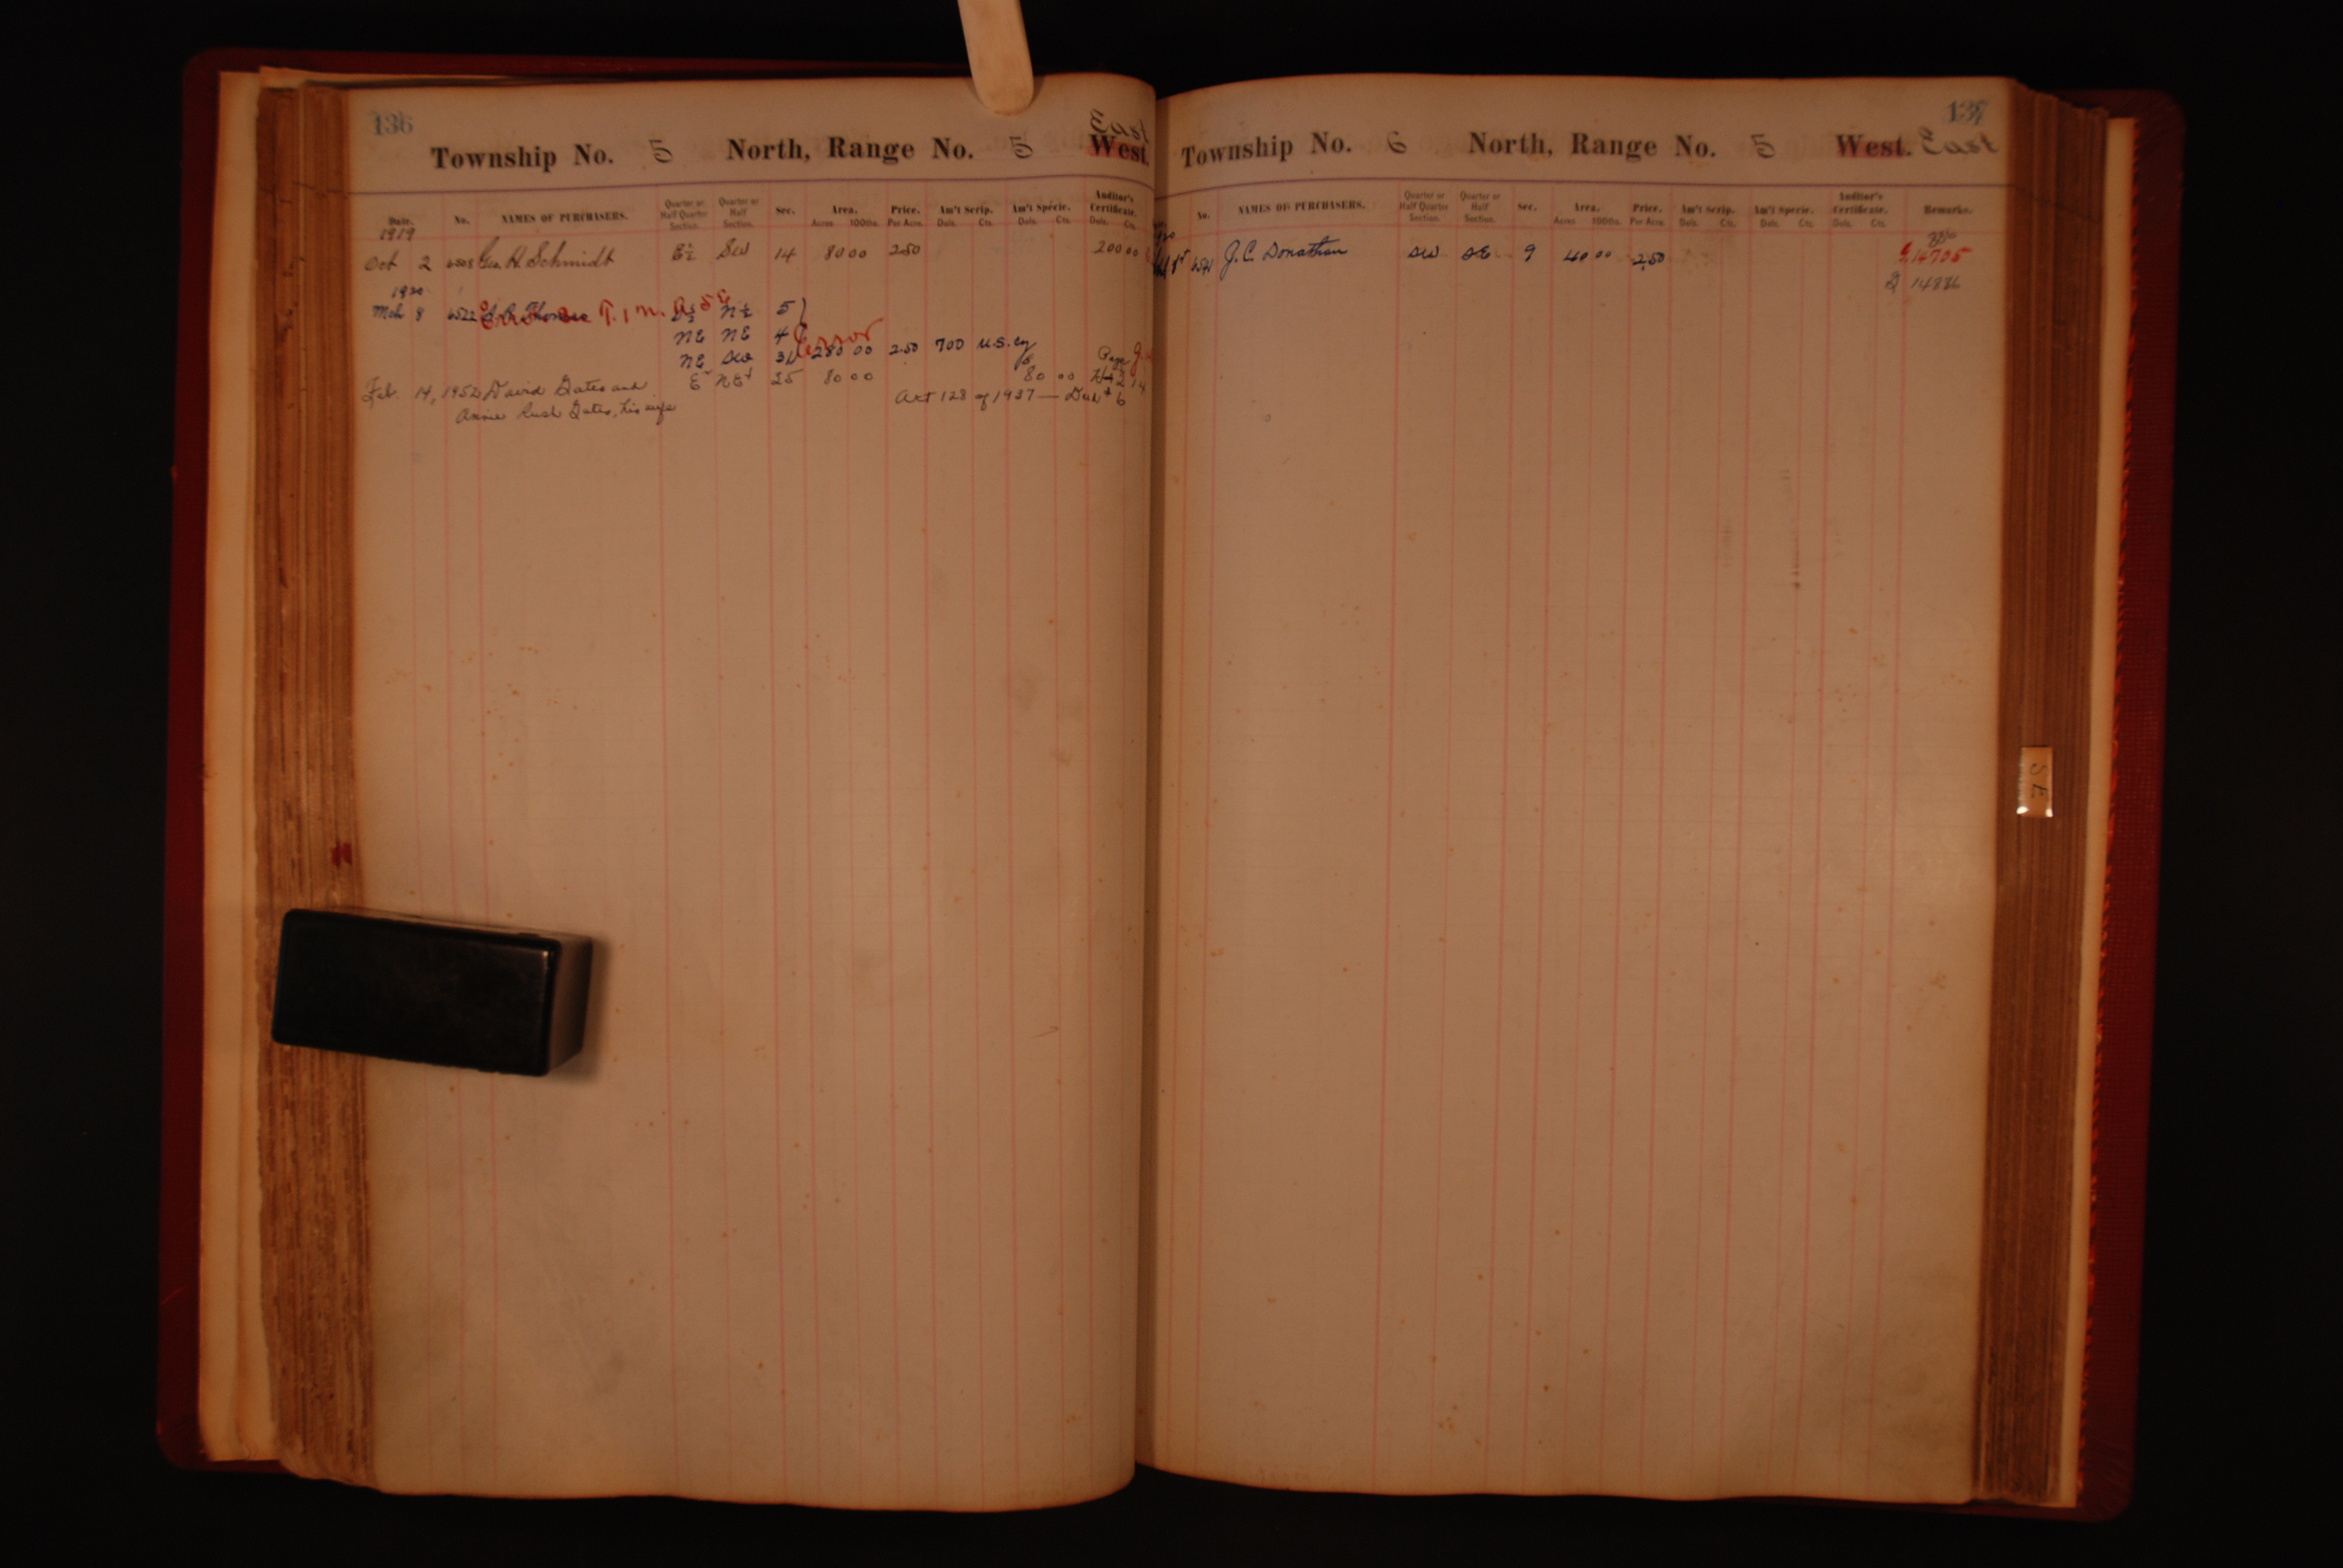 136
East
Township No. 5 North, Range No. 5 West.
Date. No. NAMES OF PURCHASERS. Quarter or Half Quarter Section. Quarter or Half Section. Sec. Area. Acres 100ths. Price. Per Acre. Am't Scrip. Dols. Cts. Am't Specie. Dols. Cts. Auditor's Certificate. Dols. Cts.
1919
Oct 2 6508 Geo. H. Schmidt E½ SW 14 80 00 2.50 200 00
1920
Mch 8 6522 Thomas N½ 5
NE NE 4 Error
NE 280 00 2.50 700 U.S. Cy
Feb. 14, 1952 David Gates and E½ NE4 25 80 00 80 00 Page
Annie Rush Gates, his wife Act 128 of 1937
137
Township No. 6 North, Range No. 5 West. East
No. NAMES OF PURCHASERS. Quarter or Half Quarter Section. Quarter or Half Section. Sec. Area. Acres 100ths. Price. Per Acre. Am't Scrip. Dols. Cts. Am't Specie. Dols. Cts. Auditor's Certificate. Dols. Cts. Remarks.
J. C. Donathan SW SE 9 40 00 2.50 14705
14886
SE